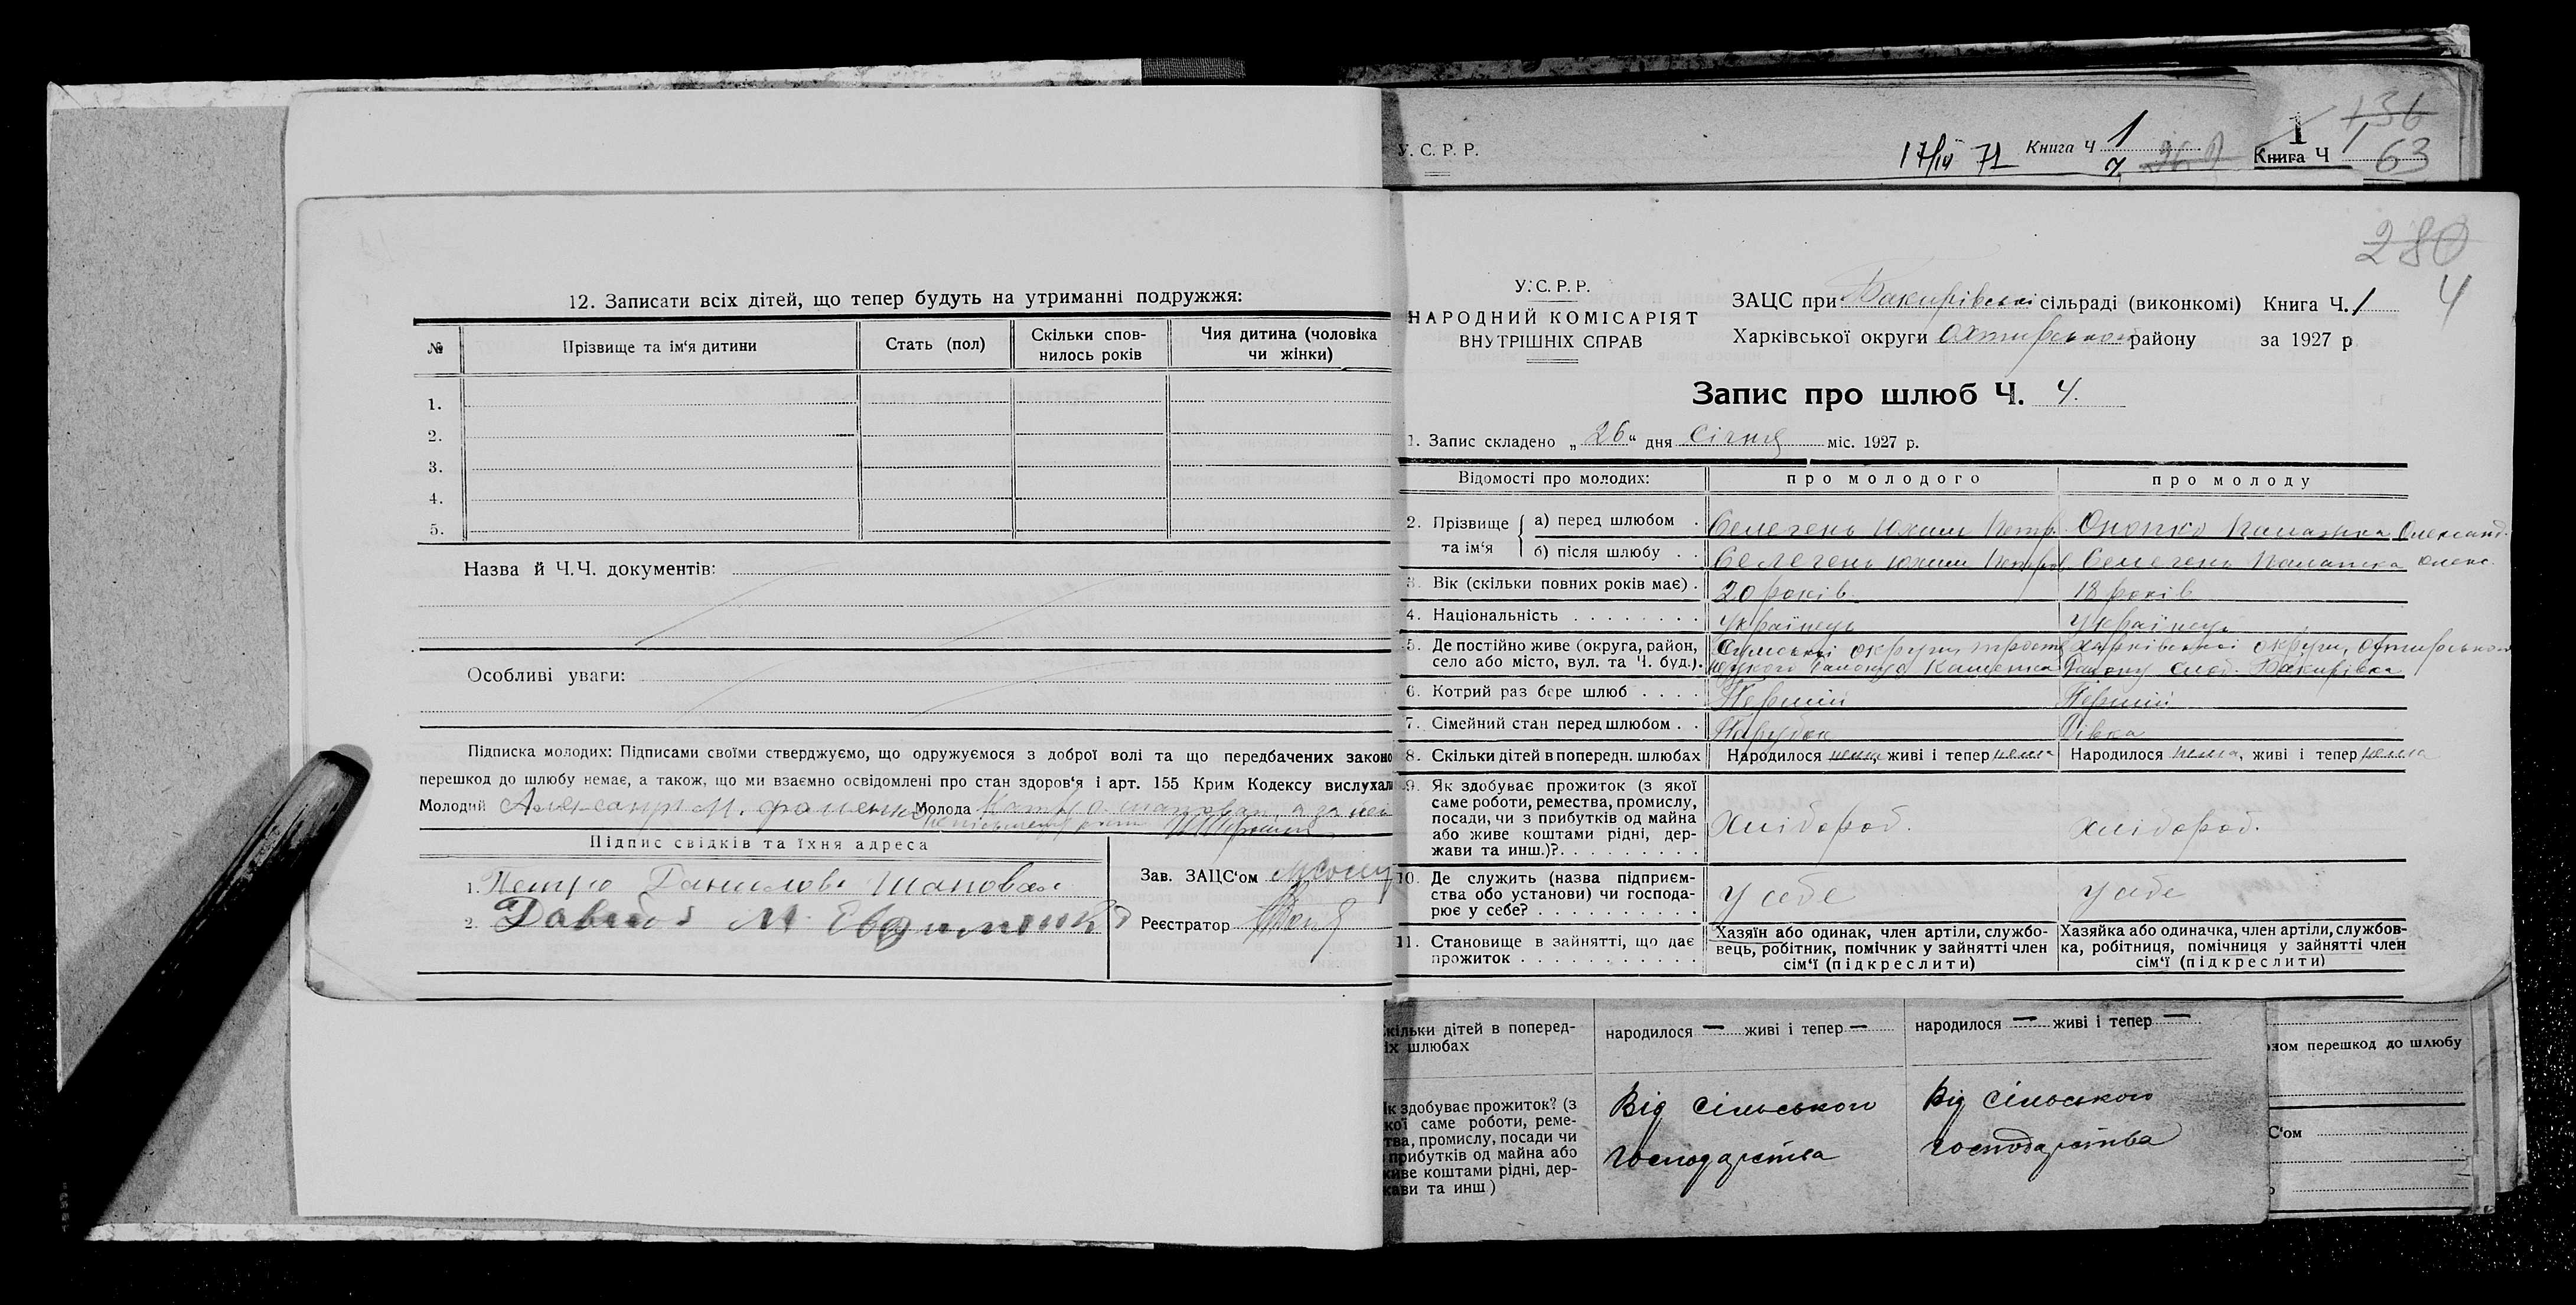 12. Записати всіх дітей, що тепер будуть на утриманні подружжя:
№
Прізвище та ім'я дитини
Стать (пол)
Скільки спов-
нилось років
Чия дитина (чоловіка
чи жінки)
1.
2.
3.
4.
5.
Назва й Ч.Ч. документів:
Особливі уваги:
Підписка молодих: Підписами своїми стверджуємо, що одружуємося з доброї волі та що передбачених законо
перешкод до шлюбу немає, а також, що ми взаємно освідомлені про стан здоров'я і арт. 155 Крим Кодексу вислухал
Молодий Александр М. Молода а за неї
Підпис свідків та їхня адреса
1. Петро Данилов Шаповал
2. Давид М Евдимонко
Зав. ЗАЦС'ом
Реєстратор
У. С. Р. Р.
17/IV 71 Книга Ч 1
1 136
Книга Ч 1 63
280
4
У.С.Р.Р.
НАРОДНИЙ КОМІСАРІЯТ
ВНУТРІШНІХ СПРАВ
ЗАЦС при Бакирівські сільраді (виконкомі) Книга Ч. 1
Харківської округи Охтирського району за 1927 р
Запис про шлюб Ч. 4.
1. Запис складено „26" дня січня міс. 1927 р.
Відомості про молодих:
про молодого
про молоду
2. Прізвище та ім'я
а) перед шлюбом . Селегень Юхим Петр. Онопко Палажка Олександ.
б) після шлюбу . . Селегень Юхим Петров Селегень Палажка Олекс.
3. Вік (скільки повних років має) . 20 років. 18 років
4. Національність . . . . . . . . Українець Українець
5. Де постійно живе (округа, район, Сумської округи, тростя Харківської округи, Охтирського
село або місто, вул. та Ч. буд.). нецкого району с Каменка Району слоб. Бакирівка
6. Котрий раз бере шлюб . . . . Перший Перший
7. Сімейний стан перед шлюбом . . Парубок Дівка
8. Скільки дітей в попередн. шлюбах Народилося нема, живі і тепер нема Народилося нема, живі і тепер нема
9. Як здобуває прожиток (з якої
саме роботи, ремества, промислу,
посади, чи з прибутків од майна
або живе коштами рідні, дер-
жави та инш.)?. . . . . . . . .
Хлібороб. хлібороб.
10. Де служить (назва підприєм-
ства або установи) чи господа-
рює у себе? . . . . . . . . . .
у себе у себе
11. Становище в зайнятті, що дає
прожиток . . . . . . . . . . .
Хазяїн або одинак, член артіли, службо-
вець, робітник, помічник у зайнятті член
сім'ї (підкреслити)
Хазяйка або одиначка, член артіли, службов-
ка, робітниця, помічниця у зайнятті член
сім'ї (підкреслити)
кільки дітей в поперед-
іх шлюбах
народилося — живі і тепер —
народилося — живі і тепер —
як здобуває прожиток? (з
кої саме роботи, реме-
тва, промислу, посади чи
прибутків од майна або
живе коштами рідні, дер-
жави та инш)
Від сільського
господарства
Від сільського
господарства
оном перешкод до шлюбу
С'ом